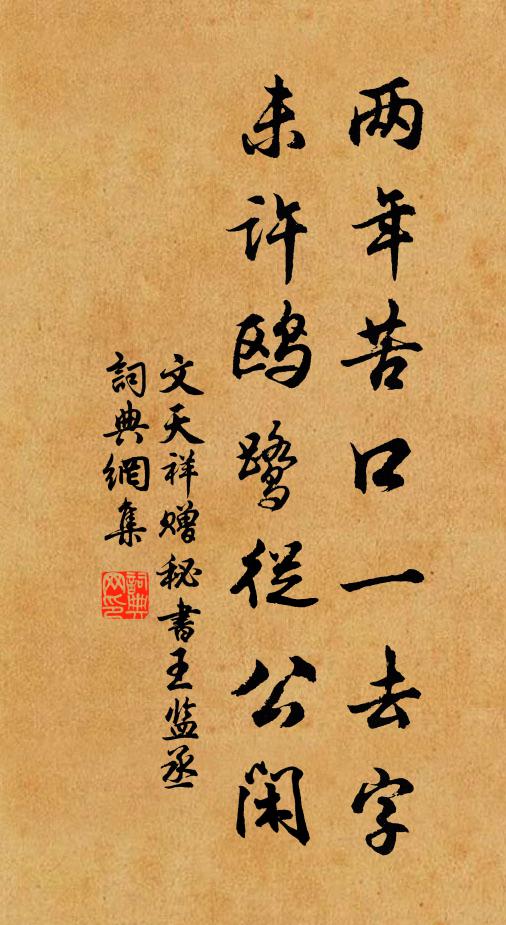 两年苦口一去字
未许鸥鹭從公闲
文天祥赠秘書王监丞
詞典網集
詞典网印